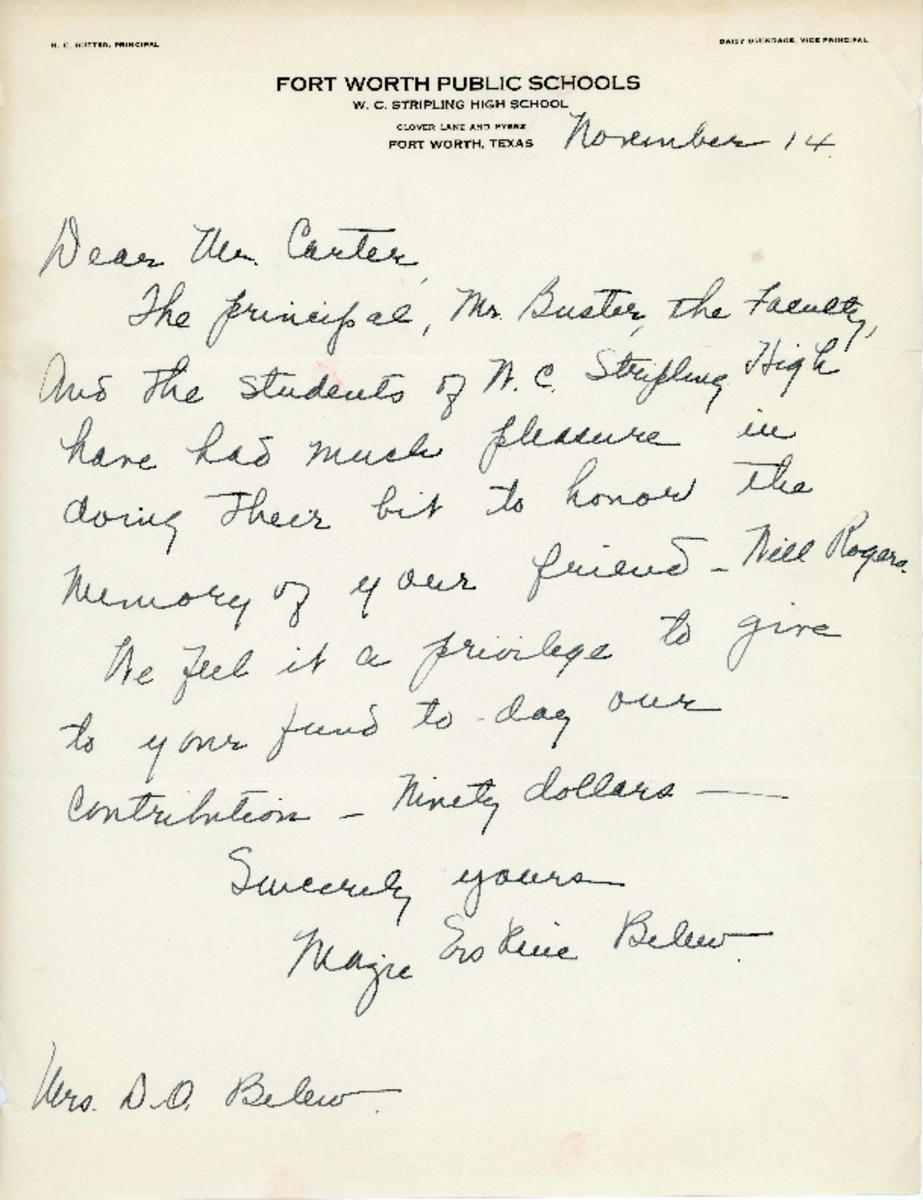 PRINCIPAL
DAISY VICE PRINCIPAL
FORT WORTH PUBLIC SCHOOLS
W. C. STRIPLING HIGH SCHOOL
CLOVER LANE AND
FORT WORTH, TEXAS
November 14
Dear Mr. Carter,
The principal, Mr. Buster, the Faculty,
and the students of W. C. Stripling High
have had much pleasure in
doing their bit to honor the
memory of your friend - Will Rogers.
We feel it a privilege to give
to your fund to-day our
contribution - Ninety dollars —
Sincerely yours
Erskine Belew.
Mrs. D.O. Belew.